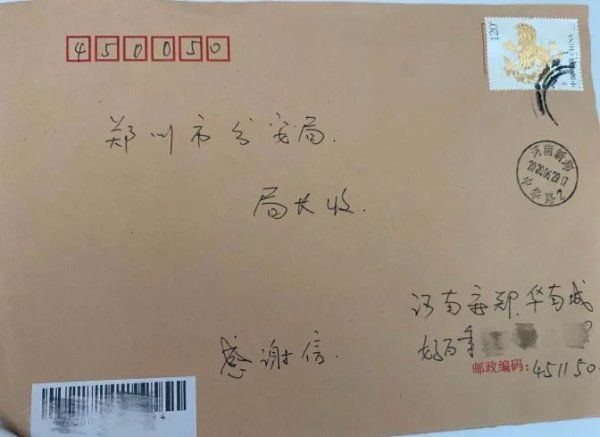 450050
120
中国邮政 CHINA
郑州市公安局.
局长收.
河南新郑
2020.06.29.17
中华路2
河南新郑.华南城
好百年
感谢信.
邮政编码:451150